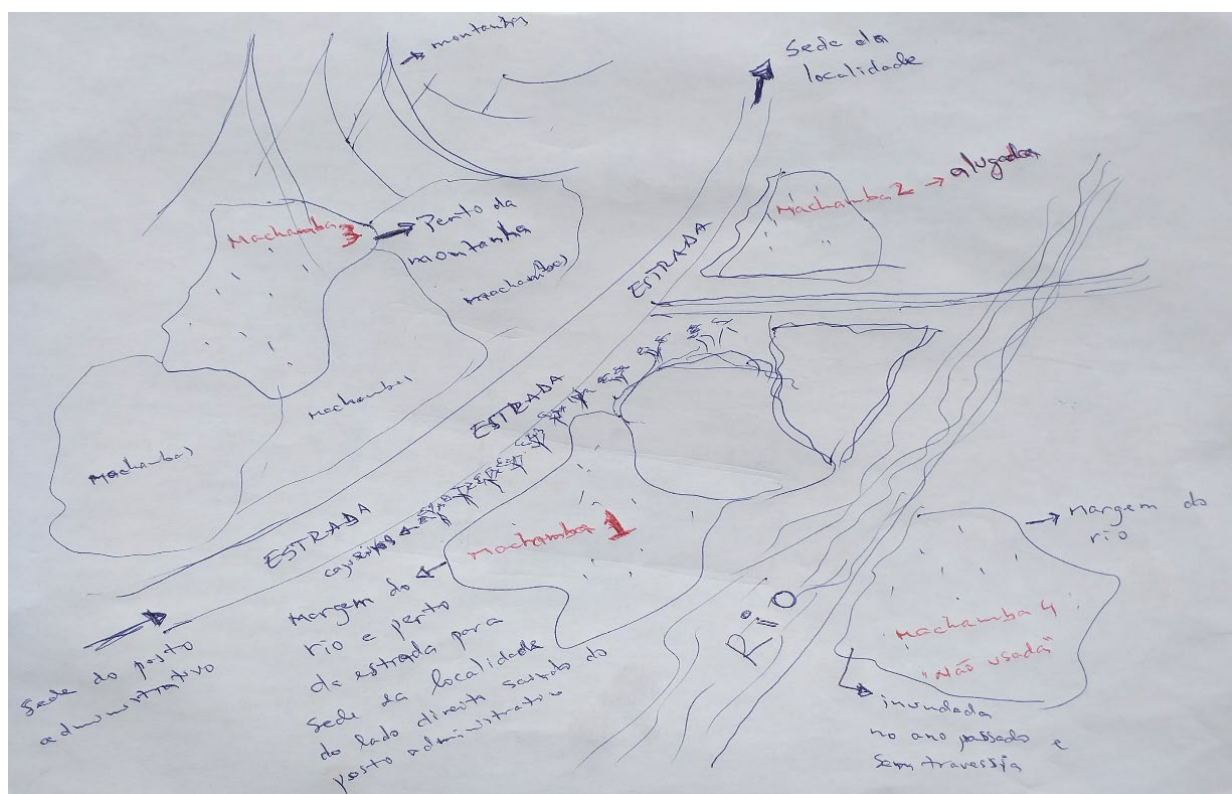 montanhas
Sede da
localidade
Machamba 2 → alugada
Machamba 3
Perto da
montanha
machambas
ESTRADA
machambas
ESTRADA
Machambas
ESTRADA
cajueiros
Machamba 1
Margem do
rio e perto
da estrada para
Sede da localidade
do lado direito saindo do
posto administrativo
Sede do posto
administrativo
Rio
Margem do
rio
Machamba 4
"Não usada"
inundada
no ano passado e
sem travessia